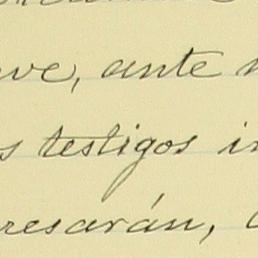 ve, ante
s testigos in
resarán,